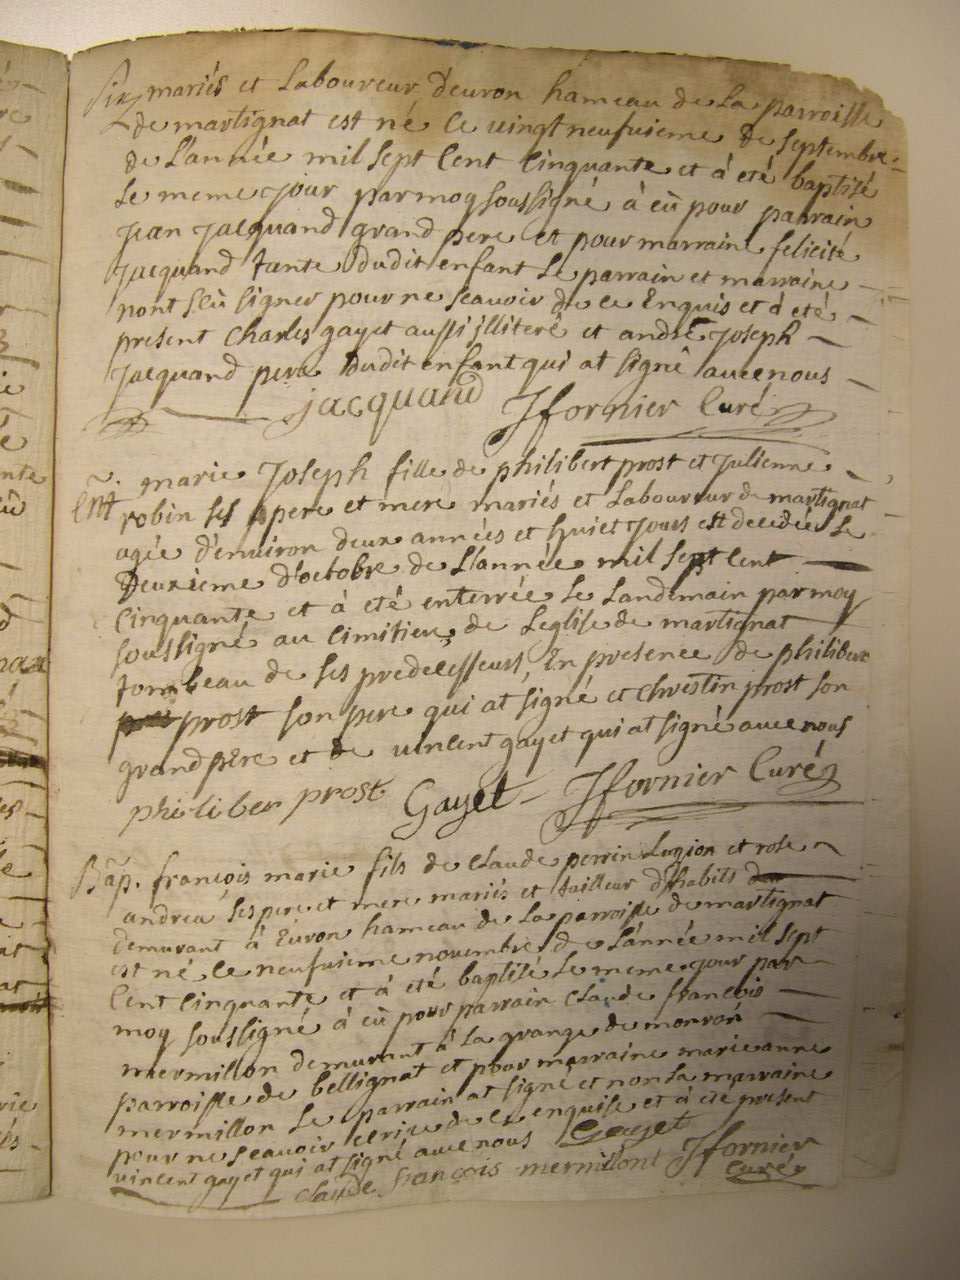 mariés et Laboureur d'euron hameau de La parroisse
de martignat est né le vingt neufuieme de septembre
de L'année mil sept Cent Cinquante et à eté baptisé
Le meme jour par moy soussigné à eû pour parrain
jean jacquand grand pere et pour marraine felicité
jacquand tante dudit enfant Le parrain et marraine
nont sçû signer pour ne sçauoir de ce Enquis et à eté
present Charles gayet aussi jlliteré et andré joseph
jacquand pere dudit enfant qui at signé auec nous
jacquand Jfornier Curé
Ent. marie Joseph fille de philibert prost et Julienne
robin ses pere et mere mariés et Laboureur de martignat
agée d'enuiron deux années et huict Jours est decedée le
Deuxieme d'octobre de L'année mil sept Cent
Cinquante et à eté enterrée Le Landemain par moy
soussigné au Cimitiere de Leglise de martignat
tombeau de ses predecesseurs En presence de philibert
prost son pere qui at signé et christin prost son
grand pere et de vincent gayet qui at signé auec nous
philiber prost Gayet Jfornier Curé
Bap. françois marie fils de Claude perrin Lugion et rose
andrea ses pere et mere mariés et tailleur d'habits
demurant à Euron hameau de La parroisse de martignat
est né le neufuieme nouembre de L'année mil sept
Cent Cinquante et à eté baptisé Le meme jour par
moy soussigné à eû pour parrain Claude françois
mermillon demurant à La grange de monron
parroisse de bellignat et pour marraine marie anne
mermillon Le parrain at signé et non La marraine
pour ne sçauoir ecrire de ce enquise et à eté present
vincent gayet qui at signé auec nous Gayet
Claude françois mermillont Jfornier
Curé